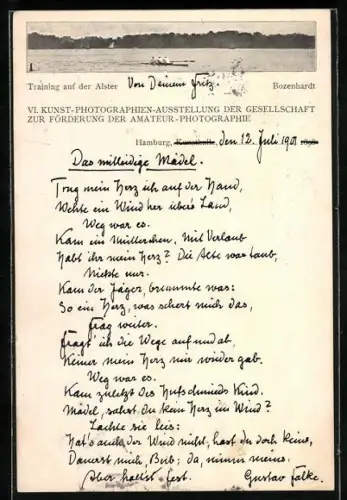 Training auf der Alster
Von Deinem Fritz.
Bozenhardt
VI. KUNST-PHOTOGRAPHIEN-AUSSTELLUNG DER GESELLSCHAFT
ZUR FÖRDERUNG DER AMATEUR-PHOTOGRAPHIE
Hamburg, Kunsthalle, den 12. Juli 1901
Das mitleidige Mädel.
Trug mein Herz ich auf der Hand,
Wehte ein Wind her über's Land,
Weg war es.
Kam ein Mütterchen. Mit Verlaub
Habt ihr mein Herz? Die Alte war taub,
Nickte nur.
Kam der Jäger, brummte was:
So ein Herz, was schert mich das,
Frag weiter.
Fragt' ich die Wege auf und ab,
Keiner mein Herz mir wieder gab.
Weg war es.
Kam zuletzt des Hufschmieds Kind.
Mädel, sahst du kein Herz im Wind?
Lachte sie leis:
Hat's auch der Wind nicht, hast du doch keins,
Dauerst mich, Bub: da, nimm meins.
Aber halt's fest.
Gustav Falke.